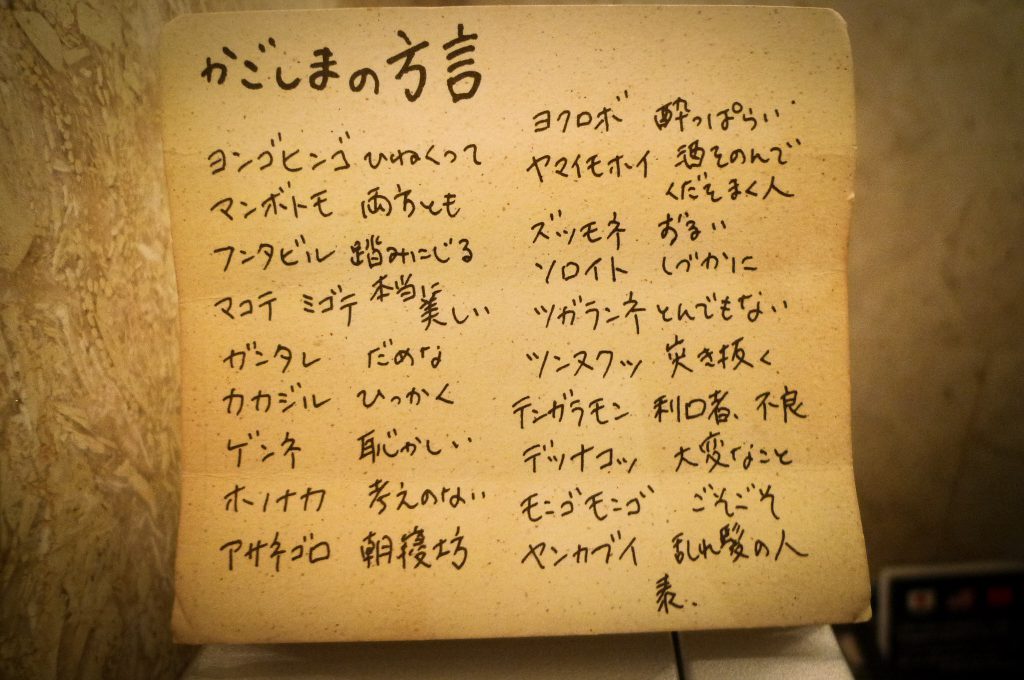 かごしまの方言
ヨンゴヒンゴ ひねくって
マンボトモ 両方とも
フンタビル 踏みにじる
マコテ ミゴテ 本当に美しい
ガンタレ だめな
カカジル ひっかく
ゲンネ 恥かしい
ホノナカ 考えのない
アサネゴロ 朝寝坊
ヨクロボ 酔っぱらい
ヤマイモホイ 酒をのんで
くだをまく人
ズツモネ おもい
ソロイト しづかに
ツガランネ とんでもない
ツンヌクッ 突き抜く
テンガラモン 利口者、不良
デツナコッ 大変なこと
モニゴモニゴ ごそごそ
ヤンカブイ 乱れ髪の人
表.